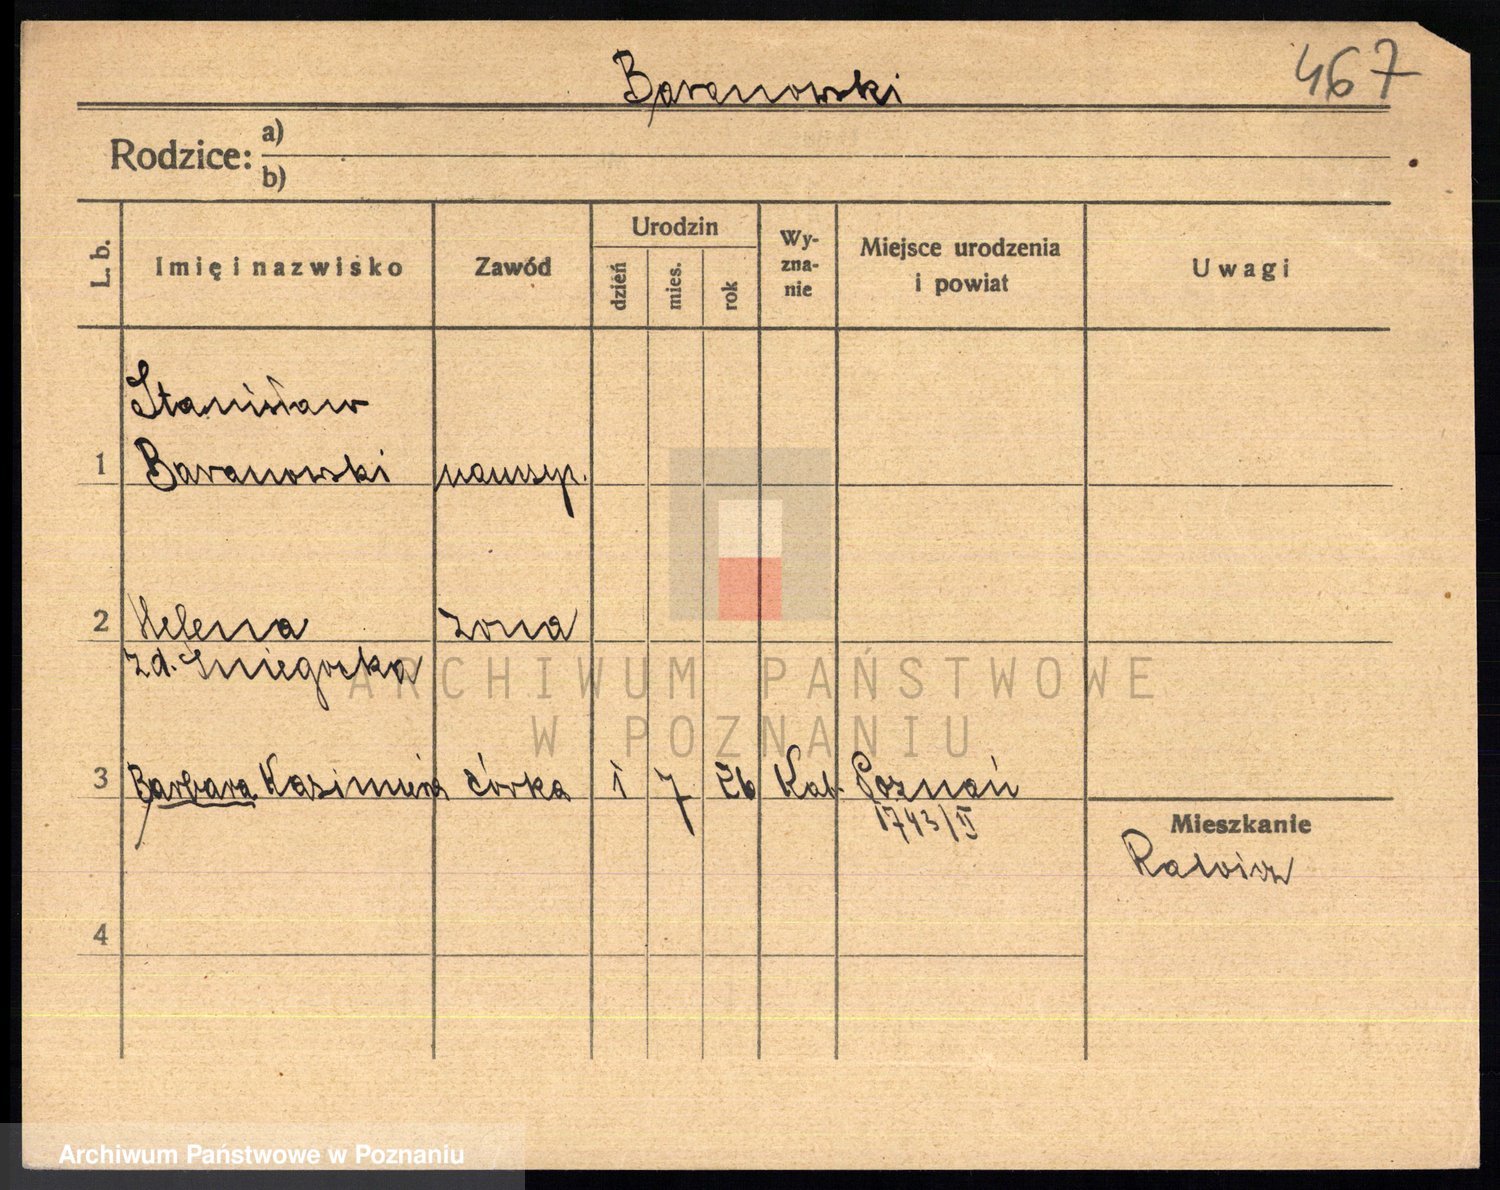 Baranowski
467
Rodzice: a)
b)
L. b.
Imię i nazwisko
Zawód
Urodzin
dzień
mies.
rok
Wy-
zna-
nie
Miejsce urodzenia
i powiat
Uwagi
Stanisław
1 Baranowski
2 Helena żona
zd. Śniegocka
3 Barbara Kazimiera córka 1 7 26 Kat. Poznań
1743/II
Mieszkanie
Rawicz
4
ARCHIWUM PAŃSTWOWE
W POZNANIU
Archiwum Państwowe w Poznaniu